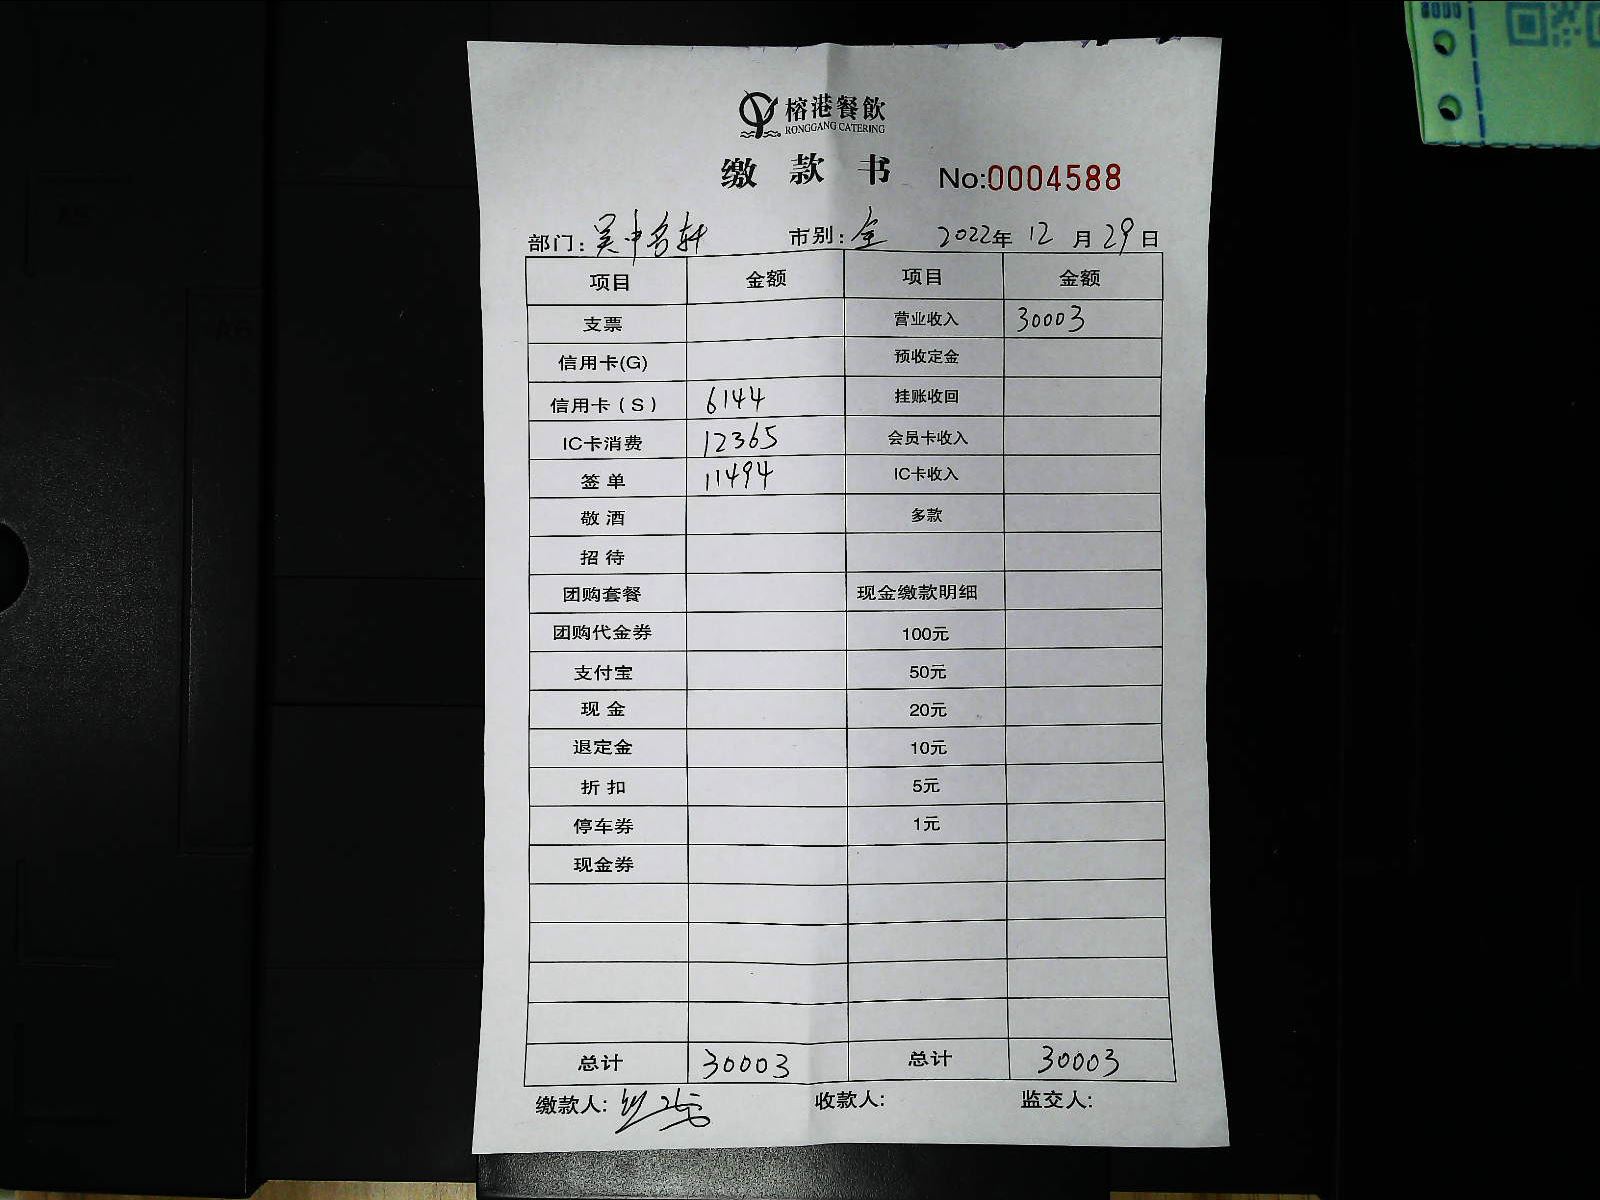 榕港餐飲
RONGGANG CATERING
缴款书 No:0004588
部门：吴中名轩 市别：全 2022年12月29日
项目 金额 项目 金额
支票 营业收入 30003
信用卡(G) 预收定金
信用卡（S） 6144 挂账收回
IC卡消费 12365 会员卡收入
签单 11494 IC卡收入
敬酒 多款
招待
团购套餐 现金缴款明细
团购代金券 100元
支付宝 50元
现金 20元
退定金 10元
折扣 5元
停车券 1元
现金券
总计 30003 总计 30003
缴款人: 收款人: 监交人: